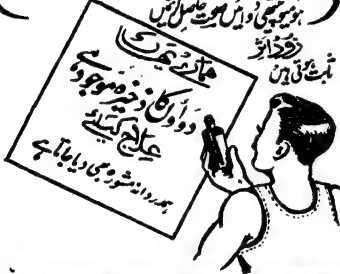 ہومیوپیتھی دوائیں صورت حاصل کریں
زود اثر
ثابت ہوتی ہیں
ہمارے یہاں
دواؤں کا ذخیرہ موجود ہے
علاج کیلئے
ہمدردانہ مشورہ بھی دیا جاتا ہے